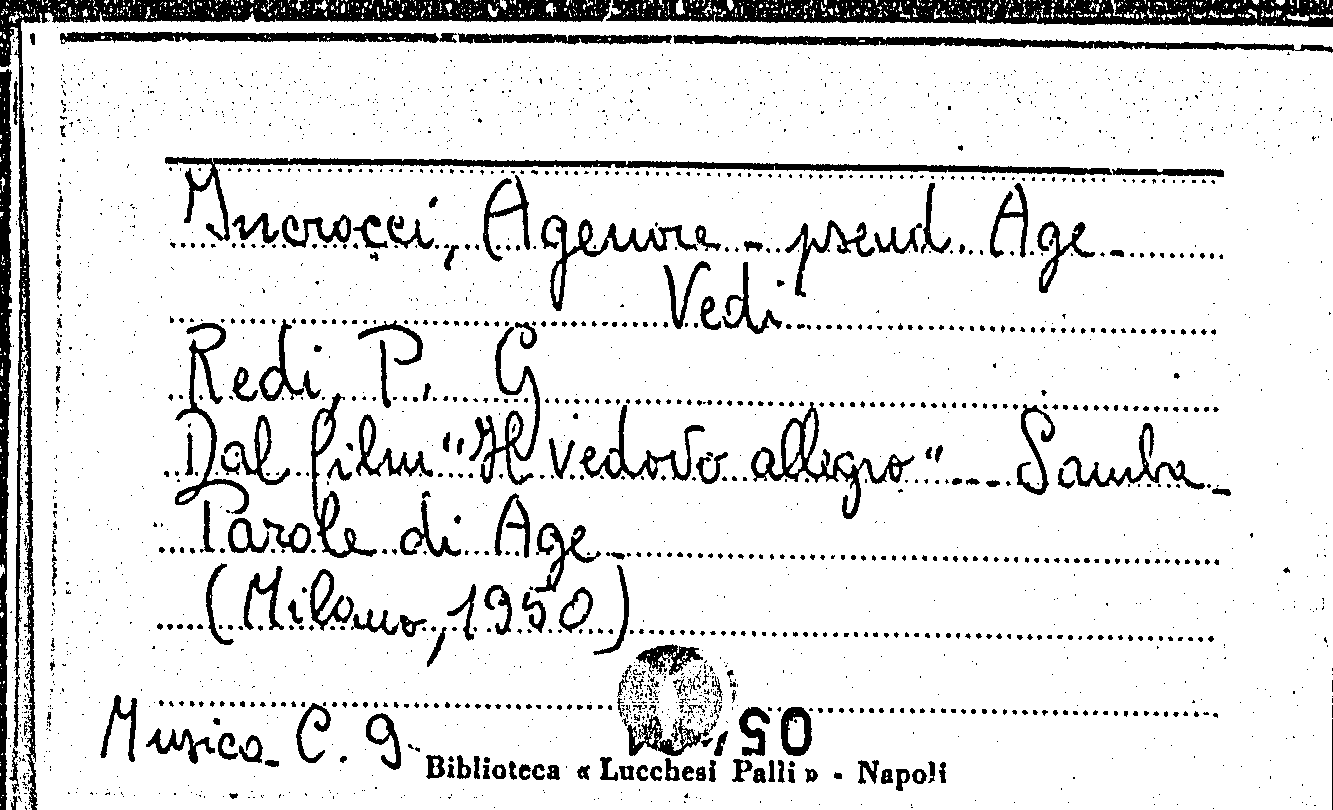 Incrocci, Agenore - pseud. Age -
Vedi
Redi, P. G
Dal film "Il vedovo allegro" - Samba -
Parole di Age -
(Milano, 1950)
Musica C. 9
Biblioteca « Lucchesi Palli » - Napoli